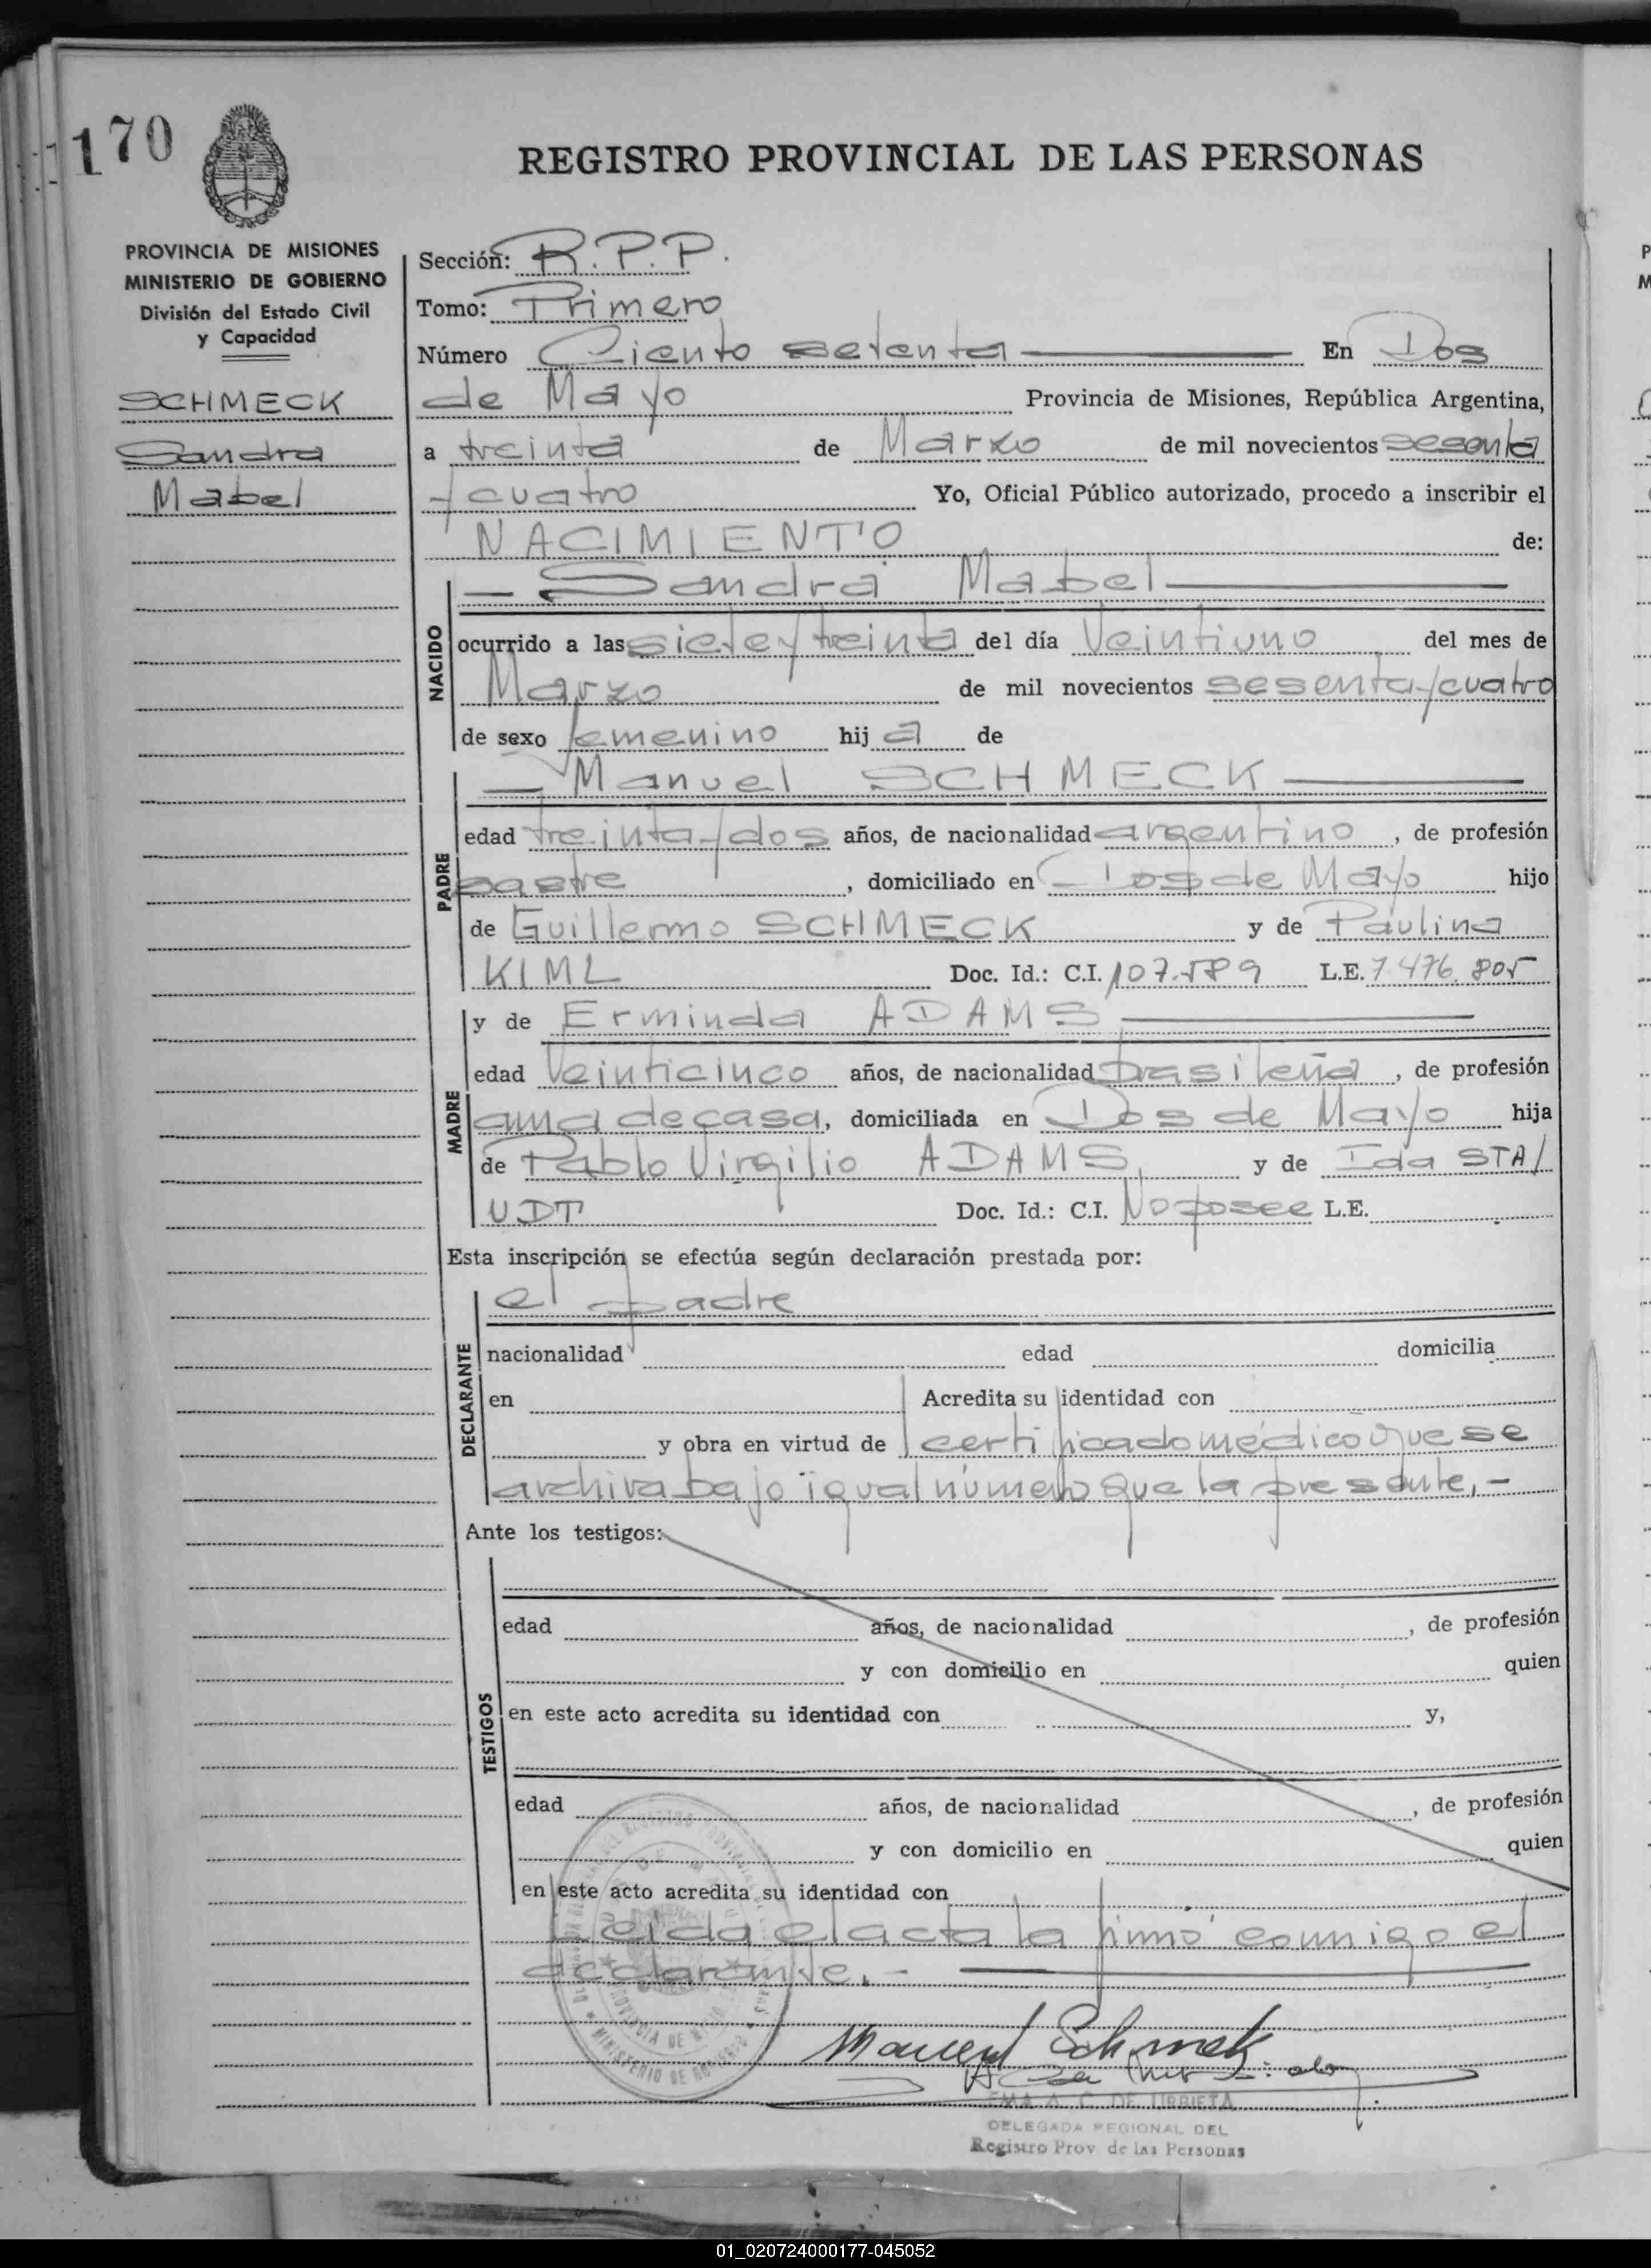 170
REGISTRO PROVINCIAL DE LAS PERSONAS
PROVINCIA DE MISIONES
MINISTERIO DE GOBIERNO
División del Estado Civil
y Capacidad
SCHMECK
Sandra
Mabel
Sección: R.P.P.
Tomo: Primero
Número Ciento setenta En Dos
de Mayo Provincia de Misiones, República Argentina,
a treinta de Marzo de mil novecientos sesenta
y cuatro Yo, Oficial Público autorizado, procedo a inscribir el
NACIMIENTO de:
Sandra Mabel
NACIDO
ocurrido a las siete y treinta del día Veintiuno del mes de
Marzo de mil novecientos sesenta y cuatro
de sexo femenino hij a de
Manuel SCHMECK
PADRE
edad treinta y dos años, de nacionalidad argentino, de profesión
sastre, domiciliado en Dos de Mayo hijo
de Guillermo SCHMECK y de Paulina
KIML Doc. Id.: C.I. 107.589 L.E. 7.476.805
y de Erminda ADAMS
MADRE
edad Veinticinco años, de nacionalidad brasileña, de profesión
ama de casa, domiciliada en Dos de Mayo hija
de Pablo Virgilio ADAMS, y de Ida STA/
UDT Doc. Id.: C.I. No posee L.E.
Esta inscripción se efectúa según declaración prestada por:
el padre
DECLARANTE
nacionalidad edad domicilia
en Acredita su identidad con
y obra en virtud de certificado médico que se
archiva bajo igual número que la presente.-
Ante los testigos:
TESTIGOS
edad años, de nacionalidad , de profesión
y con domicilio en quien
en este acto acredita su identidad con y,
edad años, de nacionalidad , de profesión
y con domicilio en quien
en este acto acredita su identidad con
Leida el acta la firmó conmigo el
declarante.-
MINISTERIO DE GOBIERNO
Manuel Schmek
EMA A. C. DE URBIETA
DELEGADA REGIONAL DEL
Registro Prov. de las Personas
01_020724000177-045052